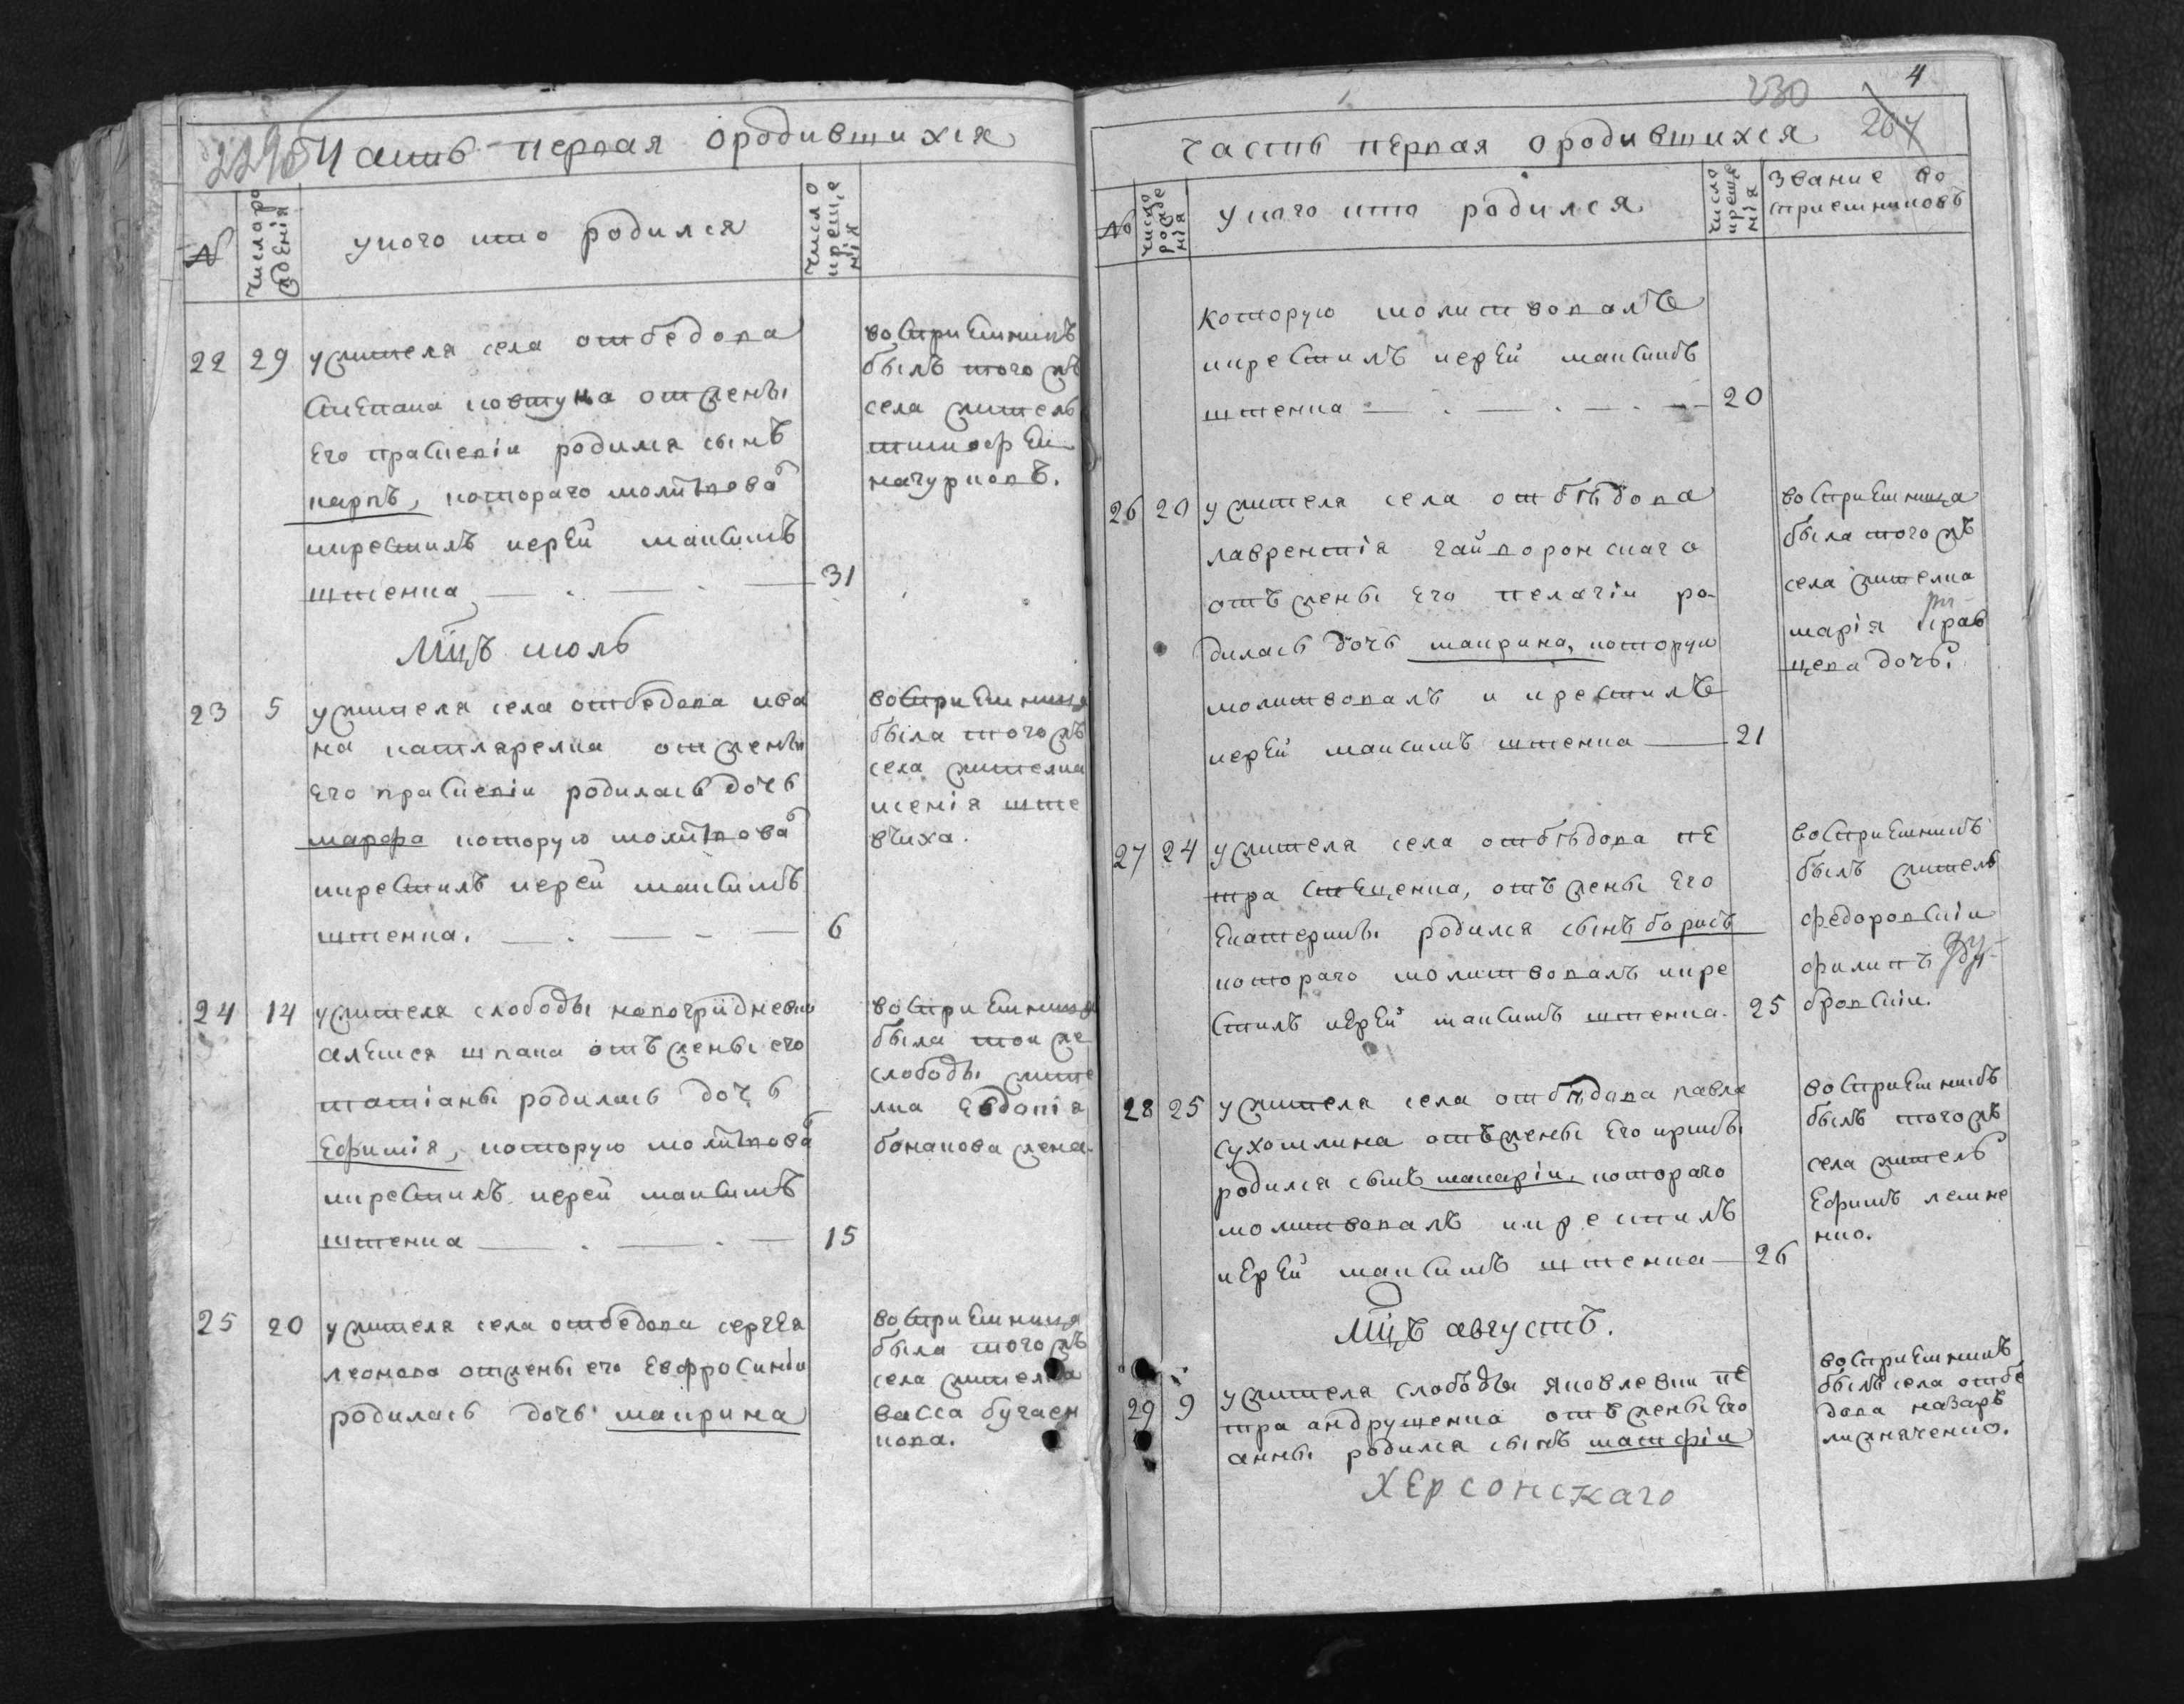 229об
Часть первая о родившихся
№
число рождения
у кого кто родился
число крещенія
22 29 у жителя села отбедова
Степана ковтуна от жены
его праскевіи родился сынъ
карпъ, котораго молитвова
и крестилъ иерей максимъ
штенка 31
воспріемникъ
былъ того жъ
села житель
тимофей
качурковъ.
Мцъ июль
23 5 у жителя села отбедова ива
на котляревка от жены
его праскевіи родилась дочь
марфа которую молитвова
и крестилъ иерей максимъ
штенка. 6
воспріемница
была того жъ
села жителка
ксенія ште
вчиха.
24 14 у жителя слободы новогрідневки
алексея шпака отъ жены его
татіаны родилась дочь
Ефимія, которую молитвова
и крестилъ иерей максимъ
штенка 15
воспріемница
была той же
слободы жите
лка Евдокія
бонакова жена.
25 20 у жителя села отбедова сергея
леонова от жены его Евфросиніи
родилась дочь макрина
воспріемница
была того жъ
села жителка
васса бугаен
кова.
4
230
267
часть первая о родившихся
№
число рожденія
у кого кто родился
число крещенія
звание во
спріемниковъ
которую молитвовалъ
и крестилъ иерей максимъ
штенка 20
26 20 у жителя села отбѣдова
лаврентія гайворонскаго
отъ жены его пелагіи ро-
дилась дочь макрина, которую
молитвовалъ и крестилъ
иерей максимъ штенка 21
воспріемница
была того жъ
села жителка
марія крав
цова дочь.
27 24 у жителя села отбѣдова пе
тра стеценка, отъ жены его
Екатерины родился сынъ борисъ
котораго молитвовалъ и кре
стилъ иерей максимъ штенка. 25
воспріемникъ
былъ житель
федоровскій
филипъ ду-
бровскій.
28 25 у жителя села отбѣдова павла
сухомлина отъ жены его ирины
родился сынъ макарій, котораго
молитвовалъ и крестилъ
иерей максимъ штенка 26
воспріемникъ
былъ того жъ
села житель
Ефимъ леще
нко.
Мцъ августъ.
29 9 у жителя слободы яковлевки пе
тра андрущенка отъ жены его
анны родился сынъ матфій
воспріемникъ
былъ села отбе
дова назаръ
лизначенко.
Херсонскаго